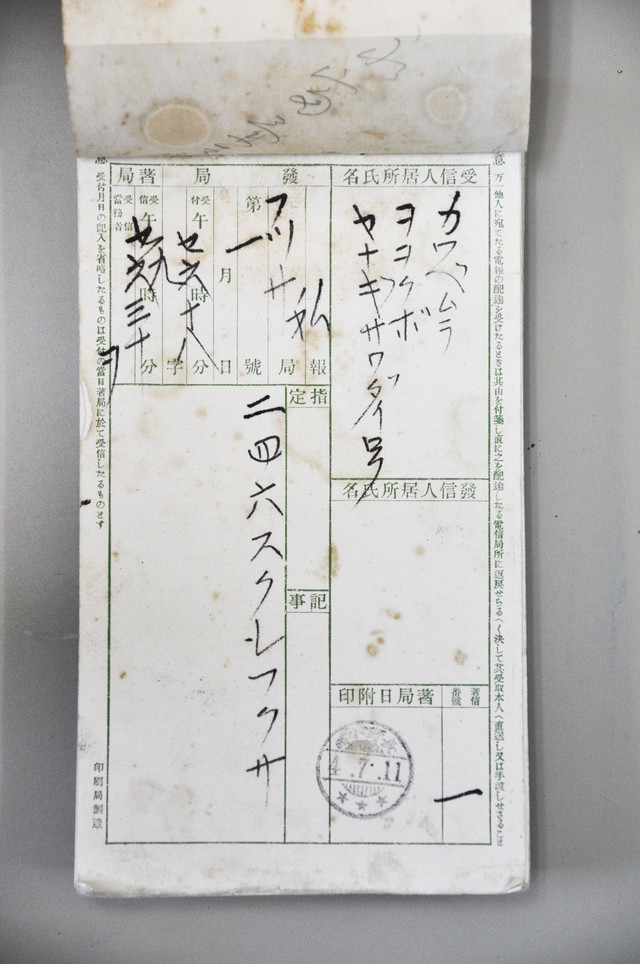 意 万一他人に宛てたる電報の配達を受けたるときは其由を付箋し直に之を配達したる電信局所に返戻せらるへく決して其受取本人へ直送し又は手渡しせさること
受信人居所氏名
カワベムラ
ヨヨクボ
ヤナギサワダイ号
發信人居所氏名
著信番號
一
著局日附印
4.7.11
發局
著局
私報
フツサ局
第一號
月日
受付 午 七 六時十八分
字
受信 午 九時三十分
當務者 受信
指定
記事
二四六スクレフクサ
意 受付月日の記入を省略したるものは受付の當日著局に於て受信したるものとす
印刷局製造